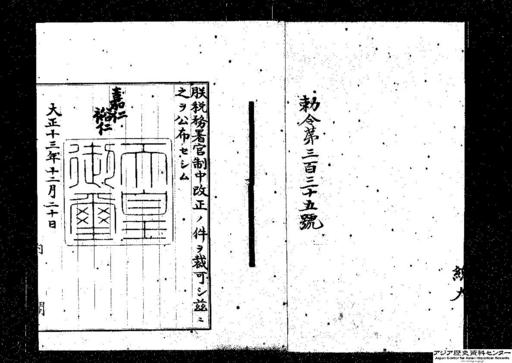 勅令第三百三十五號
朕税務署官制中改正ノ件ヲ裁可シ茲ニ
之ヲ公布セシム
嘉仁
裕仁
天皇
御璽
大正十三年十二月二十日
内閣
アジア歴史資料センター
Japan Center for Asian Historical Records